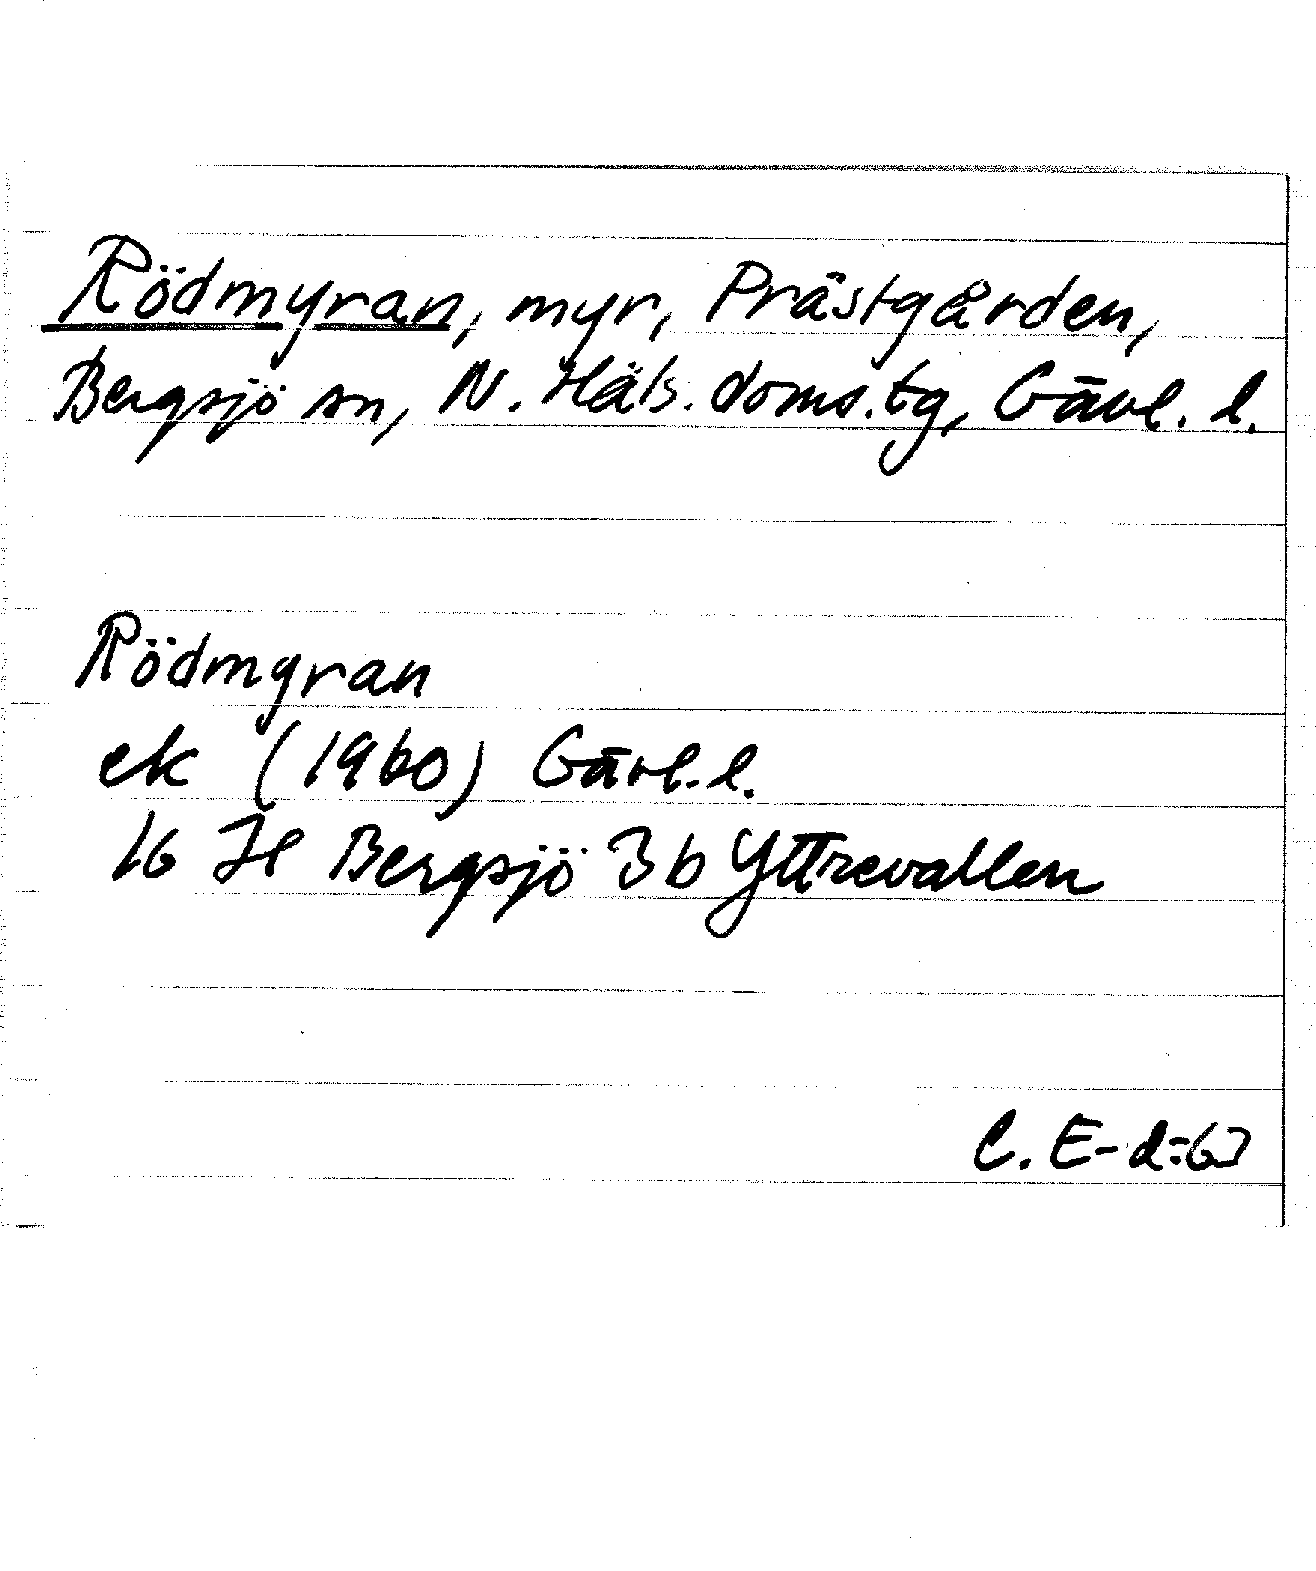 Rödmyran, myr, Prästgården,
Bergsjö sn, N. Häls. doms.tg, Gävl. l.
Rödmyran
ek (1960) Gävl. l.
16 H Bergsjö 3b Yttrevallen
C. E-d:63